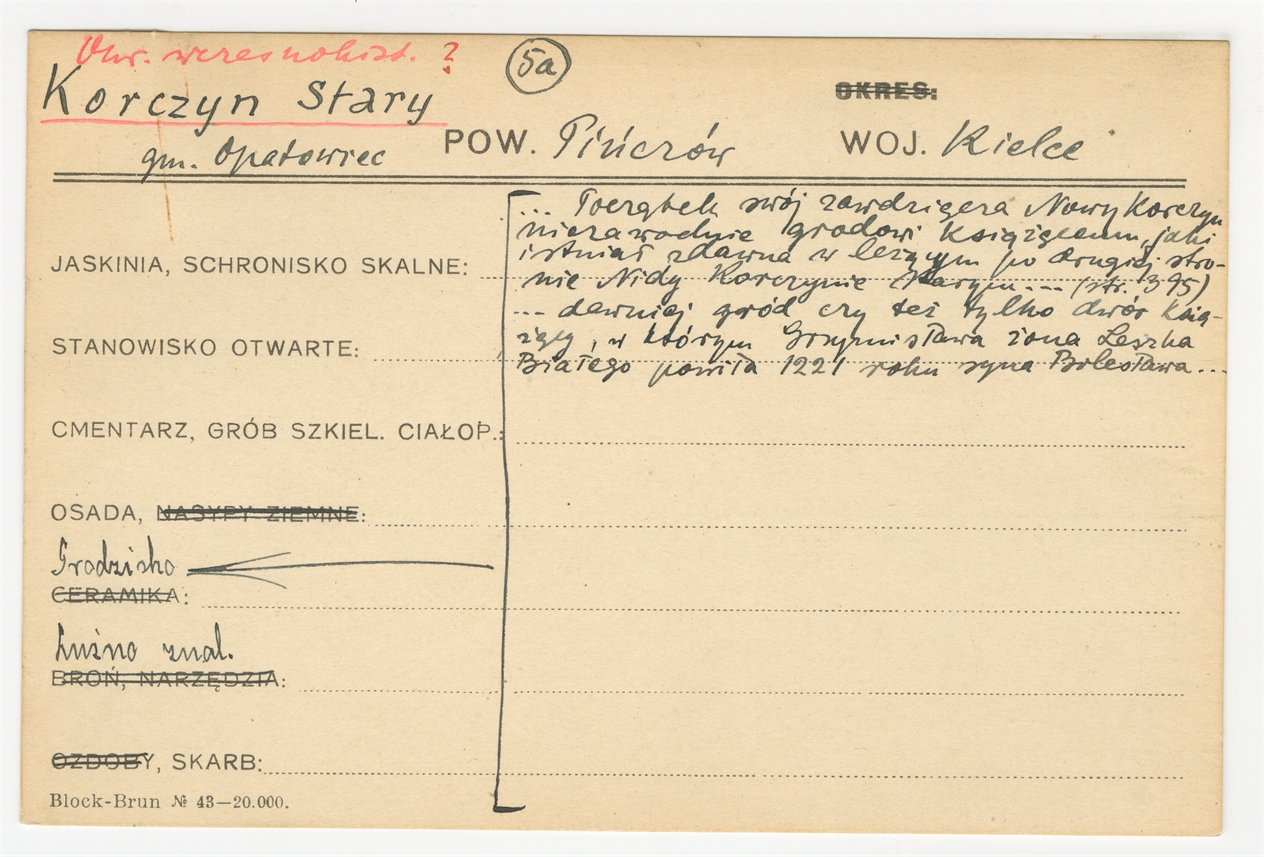 Okr. wczesnohist. ?
Korczyn Stary
5a
OKRES:
gm. Opatowiec
POW. Pińczów
WOJ. Kielce
... Początek swój zawdzięcza Nowy Korczyn
niezawodnie grodowi książęcemu, jaki
istniał zdawna w leżącym po drugiej stro-
nie Nidy Korczynie Starym... (str. 395)
... dawniej gród czy też tylko dwór ksią-
żęcy, w którym Grzymisława żona Leszka
Białego powiła 1221 roku syna Bolesława...
JASKINIA, SCHRONISKO SKALNE:
STANOWISKO OTWARTE:
CMENTARZ, GRÓB SZKIEL. CIAŁOP.:
OSADA, NASYPY ZIEMNE:
Grodzisko
CERAMIKA:
Luźno znal.
BROŃ, NARZĘDZIA:
OZDOBY, SKARB:
Block-Brun № 43—20.000.